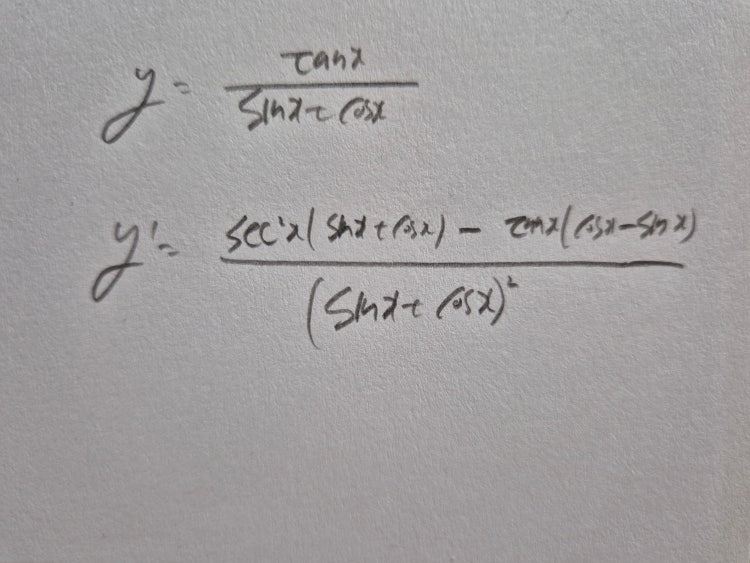 y = tanx / sinx + cosx
y' = sec²x(sinx + cosx) - tanx(cosx - sinx) / (sinx + cosx)²